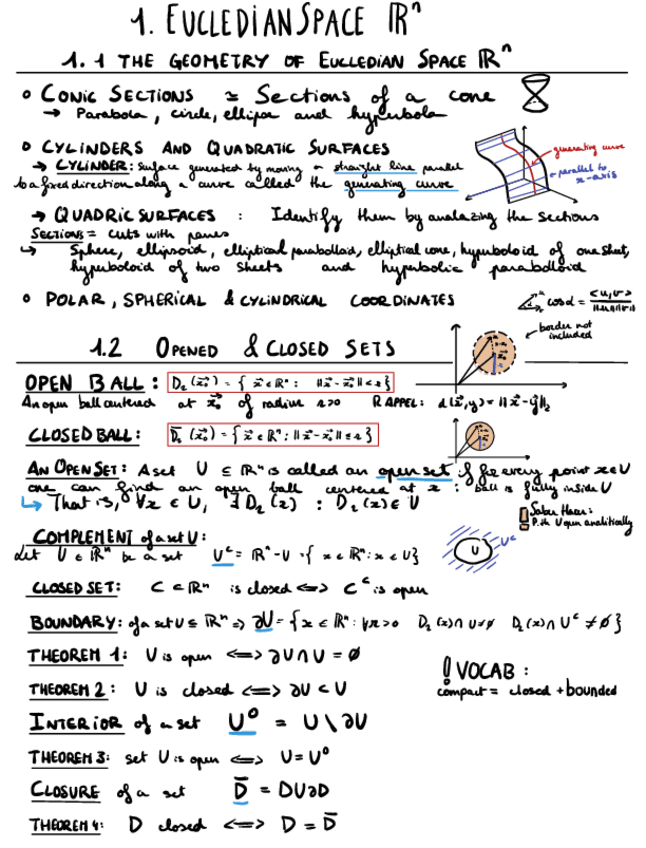 1. EUCLEDIAN SPACE ℝⁿ
1.1 THE GEOMETRY OF EUCLEDIAN SPACE ℝⁿ
° CONIC SECTIONS ≃ Sections of a cone
→ Parabola, circle, ellipse and hyperbola
° CYLINDERS AND QUADRATIC SURFACES
→ CYLINDER: surface generated by moving a straight line parallel
to a fixed direction along a curve called the generating curve
generating curve
parallel to
x-axis
→ QUADRIC SURFACES : Identify them by analazing the sections
SECTIONS = cuts with planes
↳ Sphere, ellipsoid, elliptical parabolloid, elliptical cone, hyperboloid of one sheet,
hyperboloid of two sheets and hyperbolic parabolloid
° POLAR, SPHERICAL & CYLINDRICAL COORDINATES
cos α = <u,v> / ||u|| ||v||
1.2 OPENED & CLOSED SETS
border not
included
OPEN BALL: D₂(x₀) = { x ∈ ℝⁿ : ||x - x₀|| < r }
An open ball centered at x₀ of radius r>0 RAPPEL: d(x,y) = ||x - y||₂
CLOSED BALL: D̄₂(x₀) = { x ∈ ℝⁿ : ||x - x₀|| ≤ r }
AN OPEN SET: A set U ⊆ ℝⁿ is called an open set if for every point x∈U
one can find an open ball centered at x : ball is fully inside U
↳ That is, ∀x ∈ U, ∃ D₂(x) : D₂(x) ⊂ U
! Saber Hacer:
P.th U open analitically
COMPLEMENT of a set U:
Let U ⊂ ℝⁿ be a set Uᶜ = ℝⁿ - U = { x ∈ ℝⁿ : x ∉ U }
U Uᶜ
CLOSED SET: C ⊂ ℝⁿ is closed <=> Cᶜ is open
BOUNDARY: of a set U ⊆ ℝⁿ => ∂U = { x ∈ ℝⁿ : ∀r>0 D₂(x)∩U≠∅ D₂(x)∩Uᶜ≠∅ }
THEOREM 1: U is open <=> ∂U∩U = ∅
! VOCAB:
compact = closed + bounded
THEOREM 2: U is closed <=> ∂U ⊂ U
INTERIOR of a set U⁰ = U \ ∂U
THEOREM 3: set U is open <=> U = U⁰
CLOSURE of a set D̄ = D∪∂D
THEOREM 4: D closed <=> D = D̄